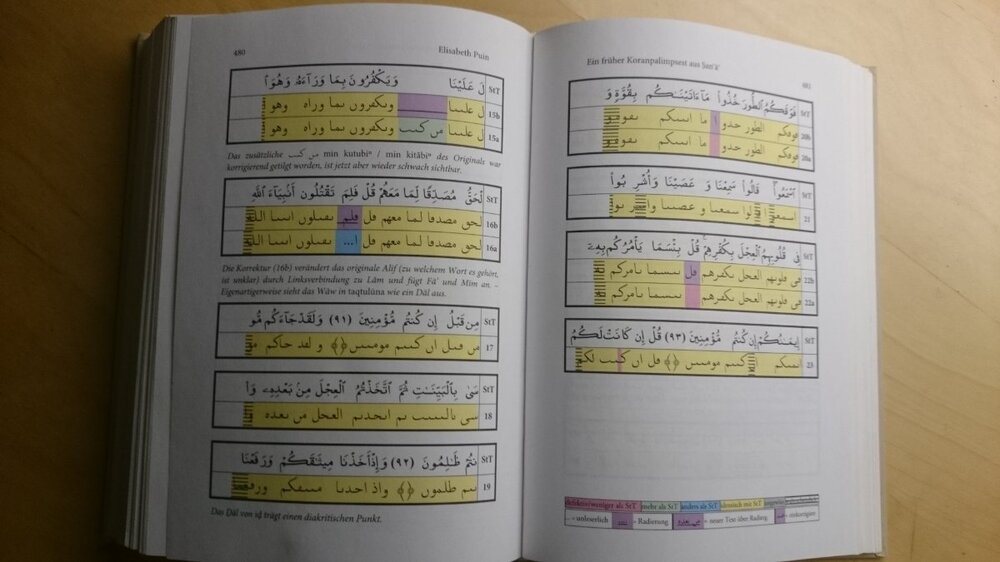 480
Elisabeth Puin
لَ عَلَيْنَا وَيَكْفُرُونَ بِمَا وَرَآءَهُ وَهُوَ ٱ StT
ل علىىا وىكڡروں ىما وراه وهو 15b
ل علىىا مں كىىب وىكڡروں ىما وراه وهو 15a
Das zusätzliche مں كىىب min kutubiⁿ / min kitābiⁿ des Originals war
korrigierend getilgt worden, ist jetzt aber wieder schwach sichtbar.
لْحَقُّ مُصَدِّقًا لِّمَا مَعَهُمْ قُلْ فَلِمَ تَقْتُلُونَ أَنۢبِيَآءَ ٱللَّهِ StT
لحق مصدڡا لما معهم ڡل ڡلم ىڡىلوں اىىىا الله 16b
لحق مصدڡا لما معهم ڡل ...ا ىڡىلوں اىىىا الله 16a
Die Korrektur (16b) verändert das originale Alif (zu welchem Wort es gehört,
ist unklar) durch Linksverbindung zu Lām und fügt Fāʾ und Mīm an. –
Eigenartigerweise sieht das Wāw in taqtulūna wie ein Dāl aus.
مِن قَبْلُ إِن كُنتُم مُّؤْمِنِينَ (٩١) وَلَقَدْ جَآءَكُم مُّو StT
مں ڡىل اں كىىم مومىىں ﴿﴾ و لڡد حاكم مو 17
سَىٰ بِٱلْبَيِّنَـٰتِ ثُمَّ ٱتَّخَذْتُمُ ٱلْعِجْلَ مِنۢ بَعْدِهِۦ وَأَ StT
سى ىالىىىى ىم اىحدىم العحل مں ىعده و ا 18
نتُمْ ظَـٰلِمُونَ (٩٢) وَإِذْ أَخَذْنَا مِيثَـٰقَكُمْ وَرَفَعْنَا StT
ىىم طلموں ﴿﴾ واذ احدىا مىىڡكم ورڡعىا 19
Das Ḏāl von iḏ trägt einen diakritischen Punkt.
Ein früher Koranpalimpsest aus Ṣanʿāʾ
481
فَوْقَكُمُ ٱلطُّورَ خُذُوا۟ مَآ ءَاتَيْنَـٰكُم بِقُوَّةٍ وَ StT
ڡوڡكم الطور حدو ا ما اىىىكم ىڡوه و 20b
ڡوڡكم الطور حدو ما اىىىكم ىڡوه و 20a
ٱسْمَعُوا۟ قَالُوا۟ سَمِعْنَا وَعَصَيْنَا وَأُشْرِبُوا۟ StT
اسمعوا ڡالوا سمعىا و عصىىا واسرىوا 21
فِى قُلُوبِهِمُ ٱلْعِجْلَ بِكُفْرِهِمْ قُلْ بِئْسَمَا يَأْمُرُكُم بِهِۦٓ StT
ڡى ڡلوىهم العحل ىكڡرهم ڡل ىىسما ىامركم 22b
ڡى ڡلوىهم العحل ىكڡرهم ىىسما ىامركم 22a
إِيمَـٰنُكُمْ إِن كُنتُم مُّؤْمِنِينَ (٩٣) قُلْ إِن كَانَتْ لَكُمُ StT
اىمىكم كىىم مومىىں ﴿﴾ ڡل اں كىىت لكم 23
defektiv/weniger als StT mehr als StT anders als StT identisch mit StT
... = unleserlich = Radierung = neuer Text über Radierg.